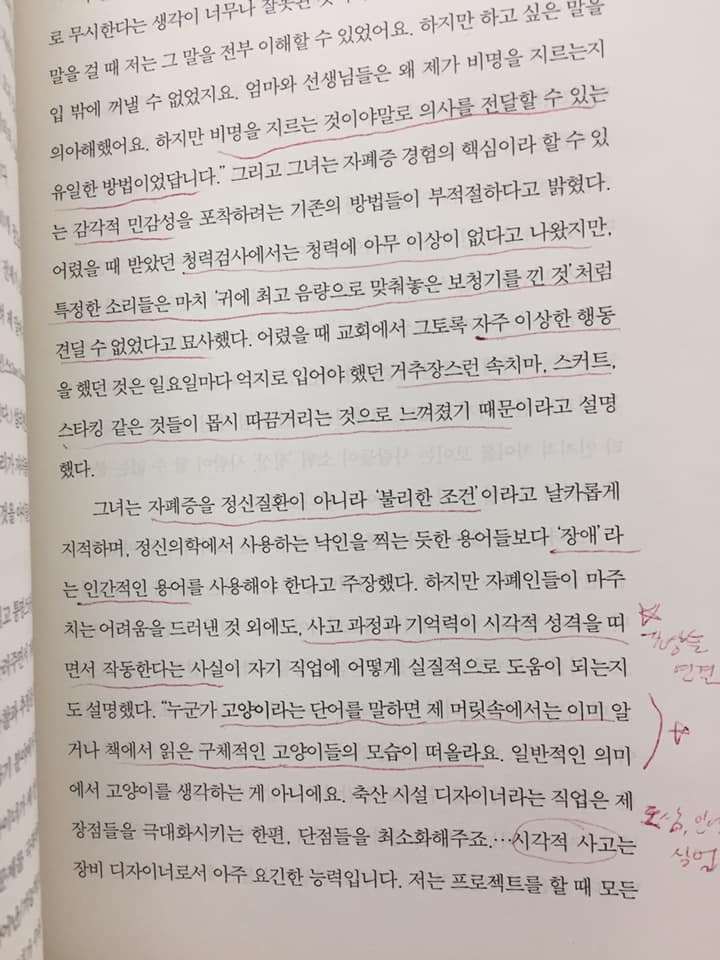 로 무시한다는 생각이 너무나 잘못된
말을 걸 때 저는 그 말을 전부 이해할 수 있었어요. 하지만 하고 싶은 말을
입 밖에 꺼낼 수 없었지요. 엄마와 선생님들은 왜 제가 비명을 지르는지
의아해했어요. 하지만 비명을 지르는 것이야말로 의사를 전달할 수 있는
유일한 방법이었답니다.” 그리고 그녀는 자폐증 경험의 핵심이라 할 수 있
는 감각적 민감성을 포착하려는 기존의 방법들이 부적절하다고 밝혔다.
어렸을 때 받았던 청력검사에서는 청력에 아무 이상이 없다고 나왔지만,
특정한 소리들은 마치 ‘귀에 최고 음량으로 맞춰놓은 보청기를 낀 것’처럼
견딜 수 없었다고 묘사했다. 어렸을 때 교회에서 그토록 자주 이상한 행동
을 했던 것은 일요일마다 억지로 입어야 했던 거추장스런 속치마, 스커트,
스타킹 같은 것들이 몹시 따끔거리는 것으로 느껴졌기 때문이라고 설명
했다.
그녀는 자폐증을 정신질환이 아니라 ‘불리한 조건’이라고 날카롭게
지적하며, 정신의학에서 사용하는 낙인을 찍는 듯한 용어들보다 ‘장애’라
는 인간적인 용어를 사용해야 한다고 주장했다. 하지만 자폐인들이 마주
치는 어려움을 드러낸 것 외에도, 사고 과정과 기억력이 시각적 성격을 띠
면서 작동한다는 사실이 자기 직업에 어떻게 실질적으로 도움이 되는지
도 설명했다. “누군가 고양이라는 단어를 말하면 제 머릿속에서는 이미 알
거나 책에서 읽은 구체적인 고양이들의 모습이 떠올라요. 일반적인 의미
에서 고양이를 생각하는 게 아니에요. 축산 시설 디자이너라는 직업은 제
장점들을 극대화시키는 한편, 단점들을 최소화해주죠.…시각적 사고는
장비 디자이너로서 아주 요긴한 능력입니다. 저는 프로젝트를 할 때 모든
연결
직업